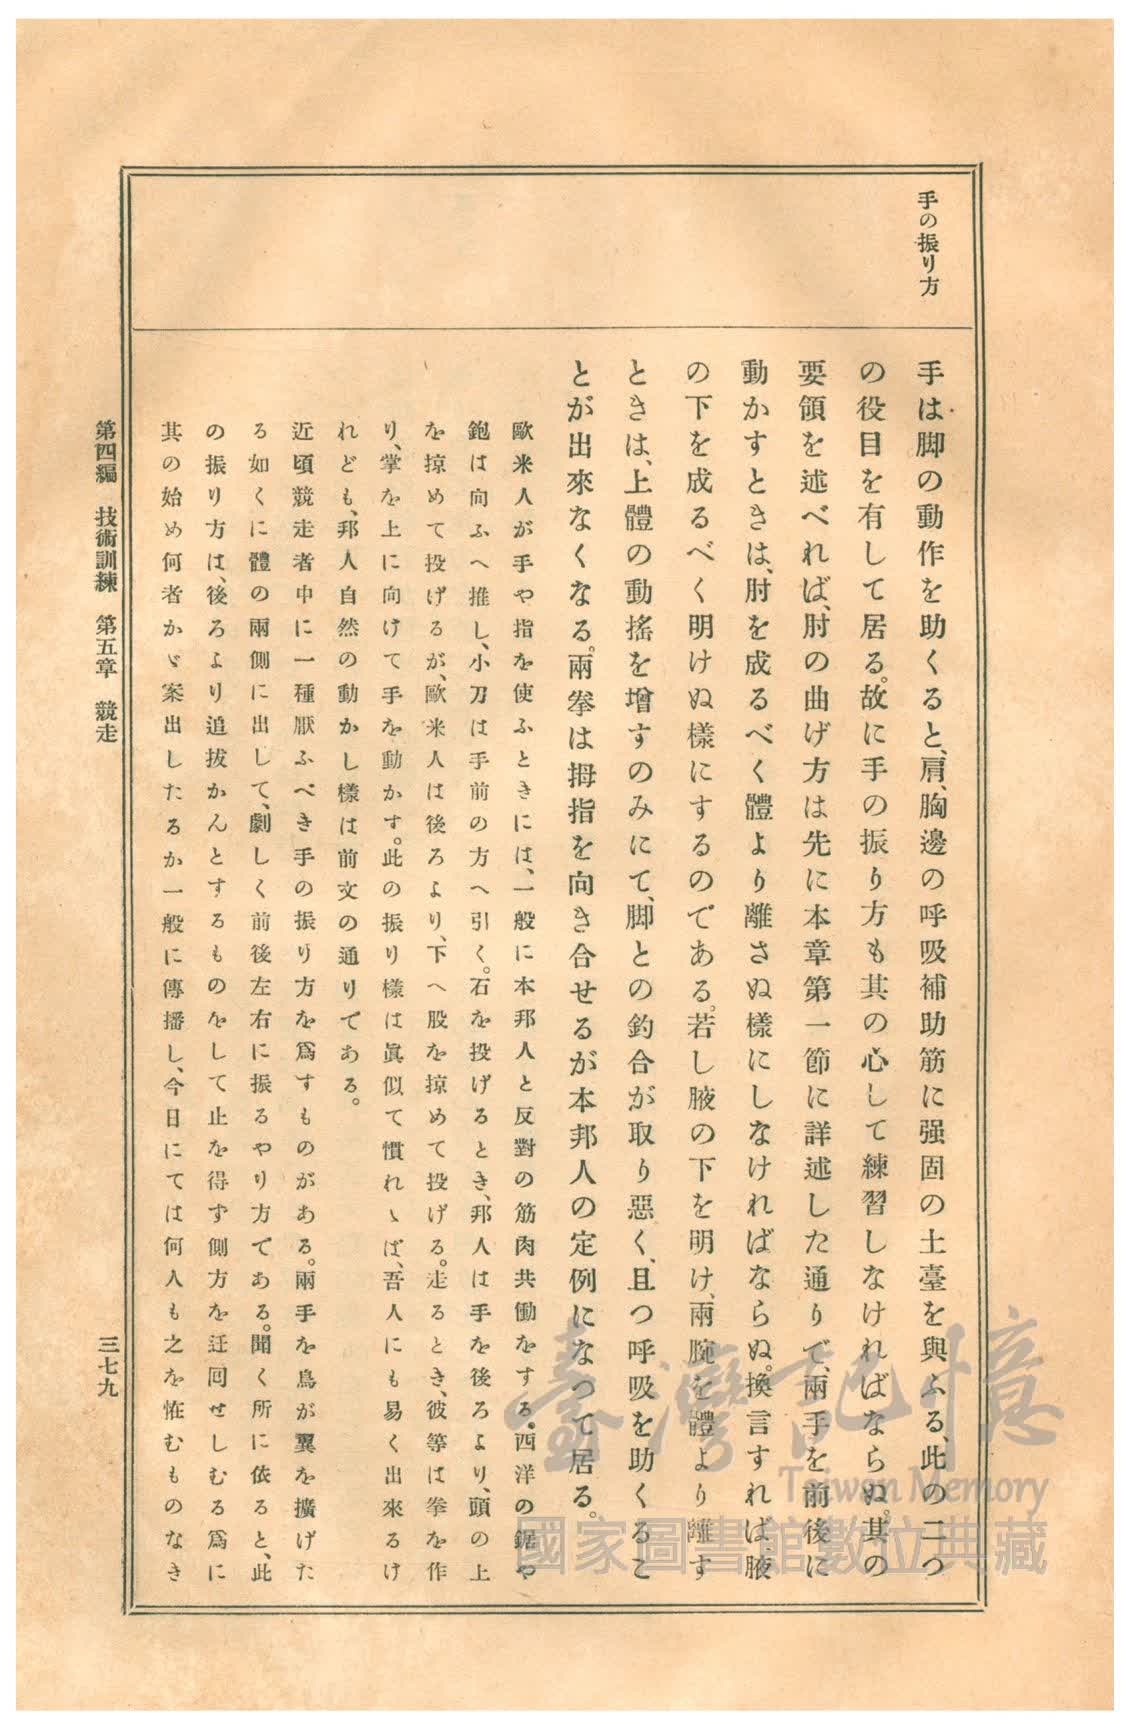 手の振り方
手は脚の動作を助くると、肩、胸邊の呼吸補助筋に强固の土臺を與ふる、此の二つ
の役目を有して居る。故に手の振り方も其の心して練習しなければならぬ。其の
要領を述べれば、肘の曲げ方は先に本章第一節に詳述した通りで、兩手を前後に
動かすときは、肘を成るべく體より離さぬ樣にしなければならぬ。換言すれば、腋
の下を成るべく明けぬ樣にするのである。若し腋の下を明け、兩腕を體より離す
ときは、上體の動搖を增すのみにて、脚との釣合が取り惡く、且つ呼吸を助くるこ
とが出來なくなる。兩拳は拇指を向き合せるが本邦人の定例になつて居る。
歐米人が手や指を使ふときには、一般に本邦人と反對の筋肉共働をする。西洋の鋸や
鉋は向ふへ推し、小刀は手前の方へ引く。石を投げるとき、邦人は手を後ろより、頭の上
を掠めて投げるが、歐米人は後ろより、下へ股を掠めて投げる。走るとき、彼等は拳を作
り、掌を上に向けて手を動かす。此の振り樣は眞似て慣れゝば、吾人にも易く出來るけ
れども、邦人自然の動かし樣は前文の通りである。
近頃競走者中に一種厭ふべき手の振り方を爲すものがある。兩手を鳥が翼を擴げた
る如くに體の兩側に出して、劇しく前後左右に振るやり方である。聞く所に依ると、此
の振り方は、後ろより追拔かんとするものをして止を得ず側方を迂回せしむる爲に
其の始め何者かゞ案出したるか一般に傳播し、今日にては何人も之を恠むものなき
第四編　技術訓練　第五章　競走
三七九
臺灣記憶
Taiwan Memory
國家圖書館數位典藏